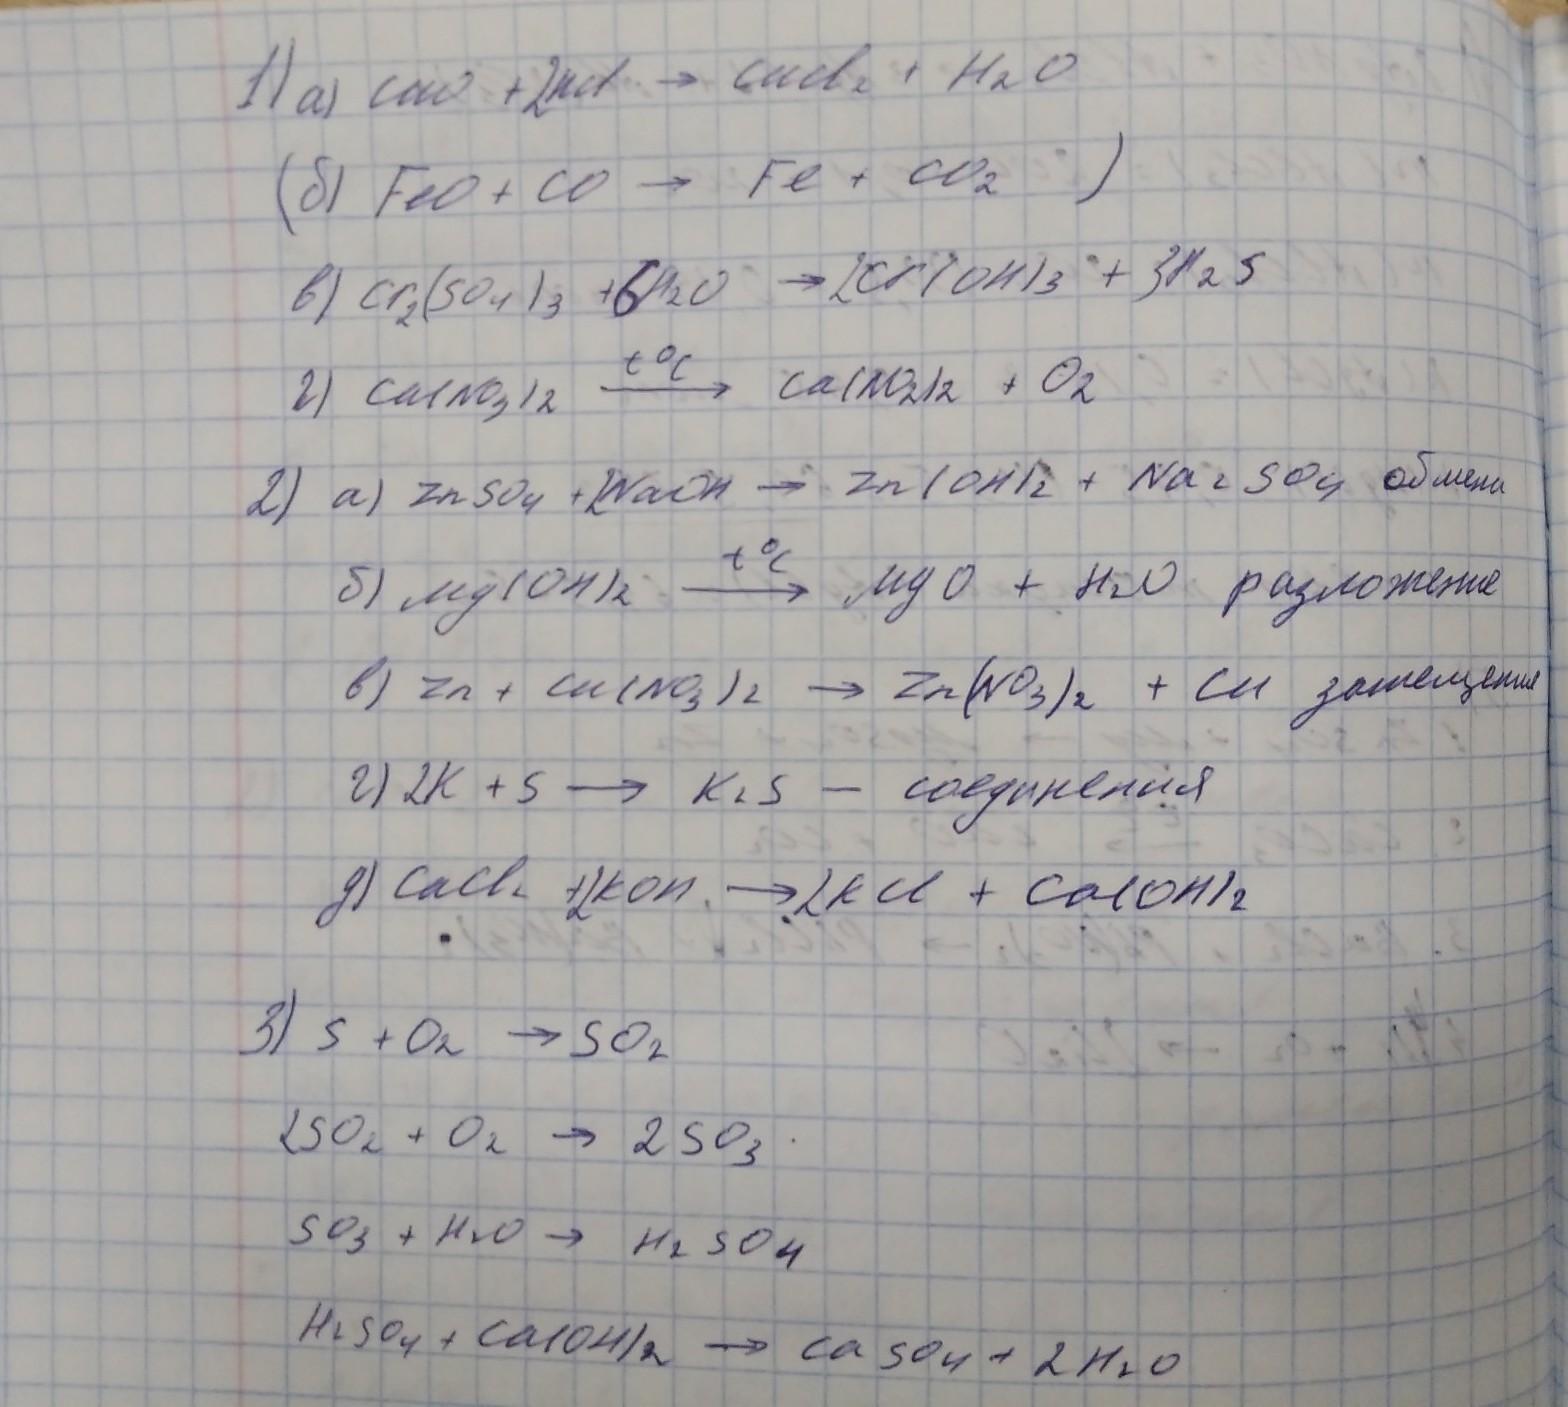 1) а) CuO + 2HCl → CuCl₂ + H₂O
(б) FeO + CO → Fe + CO₂ )
в) Cr₂(SO₄)₃ + 6H₂O → 2Cr(OH)₃ + 3H₂S
г) Ca(NO₃)₂ t°C → Ca(NO₂)₂ + O₂
2) а) ZnSO₄ + 2NaOH → Zn(OH)₂ + Na₂SO₄ обмена
б) Mg(OH)₂ t°C → MgO + H₂O разложение
в) Zn + Cu(NO₃)₂ → Zn(NO₃)₂ + Cu замещения
г) 2K + S → K₂S – соединения
д) CaCl₂ + 2KOH → 2KCl + Ca(OH)₂
3) S + O₂ → SO₂
2SO₂ + O₂ → 2SO₃
SO₃ + H₂O → H₂SO₄
H₂SO₄ + Ca(OH)₂ → CaSO₄ + 2H₂O